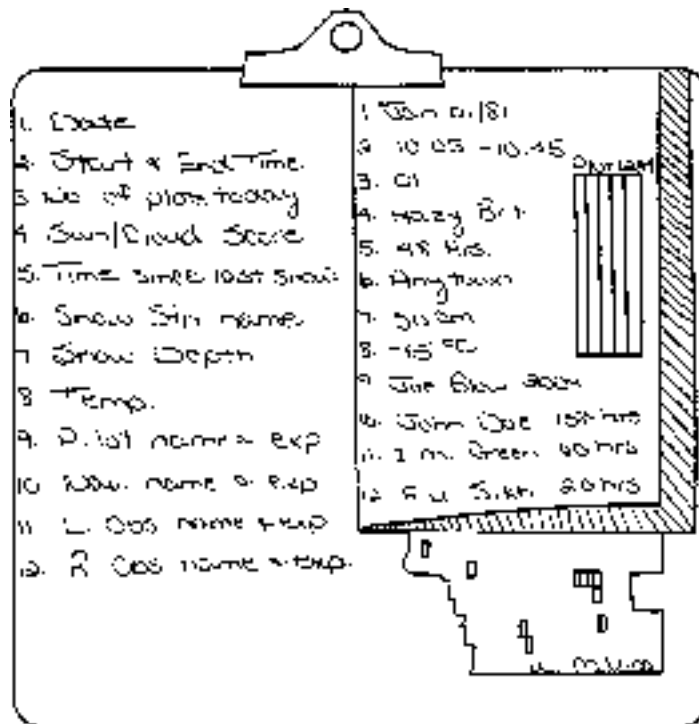 1. Date
2. Start & End Time
3. No of plots today
4. Sun/Cloud Score
5. Time since last snow
6. Snow Stn name
7. Snow Depth
8. Temp.
9. Pilot name & exp
10. Nav. name & exp
11. L. Obs name & exp
12. R Obs name & exp.
1. Jan 01/81
2. 10:05 - 10:45
3. 01
4. Hazy Brt
5. 48 Hrs.
6. Anytown
7. 50 cm
8. -15 °C
9. Joe Blow
10. John Doe hrs
11. I. M. Green 40 hrs
12. 20 hrs